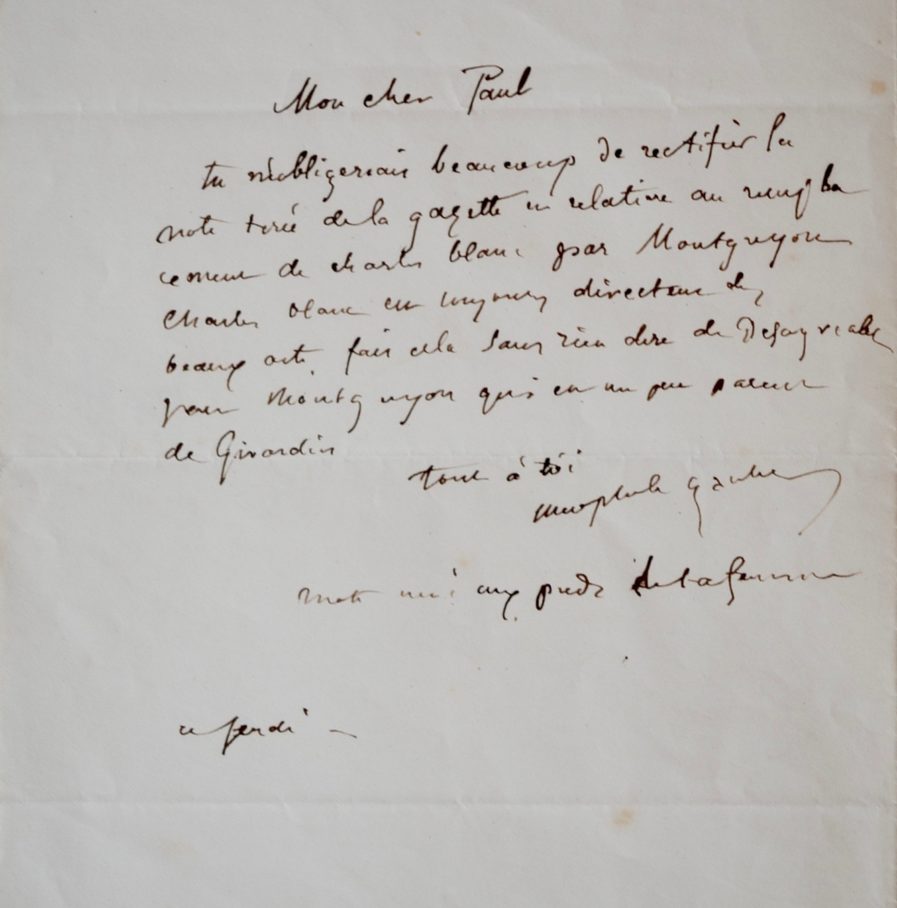 Mon cher Paul
tu m'obligerais beaucoup de rectifier la
note tirée de la gazette et relative au rempla
cement de charles blanc par Montguyon
Charles blanc est toujours directeur des
beaux arts. fais cela sans rien dire de Desagreable
pour Montguyon qui est un peu parent
de Girardin
tout à toi
Theophile Gautier
mets moi aux pieds de ta femme
ce jeudi